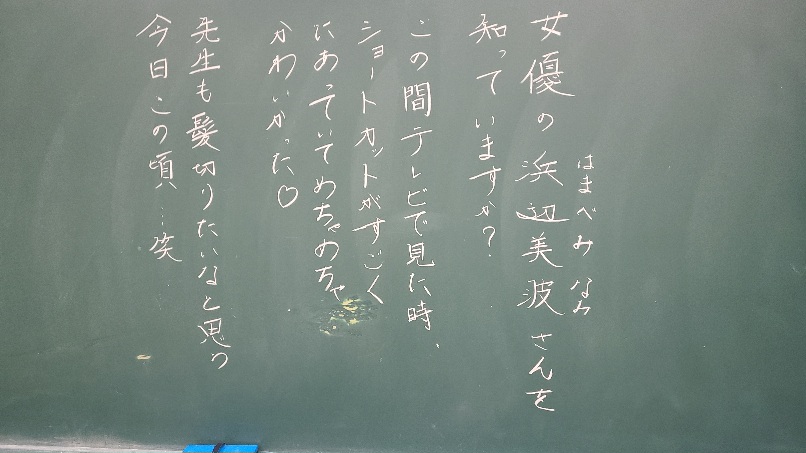 女優の浜辺美波さんを
はまべみなみ
知っていますか?
この間テレビで見た時、
ショートカットがすごく
にあっていてめちゃめちゃ
かわいかった♡
先生も髪切りたいなと思う
今日この頃…笑